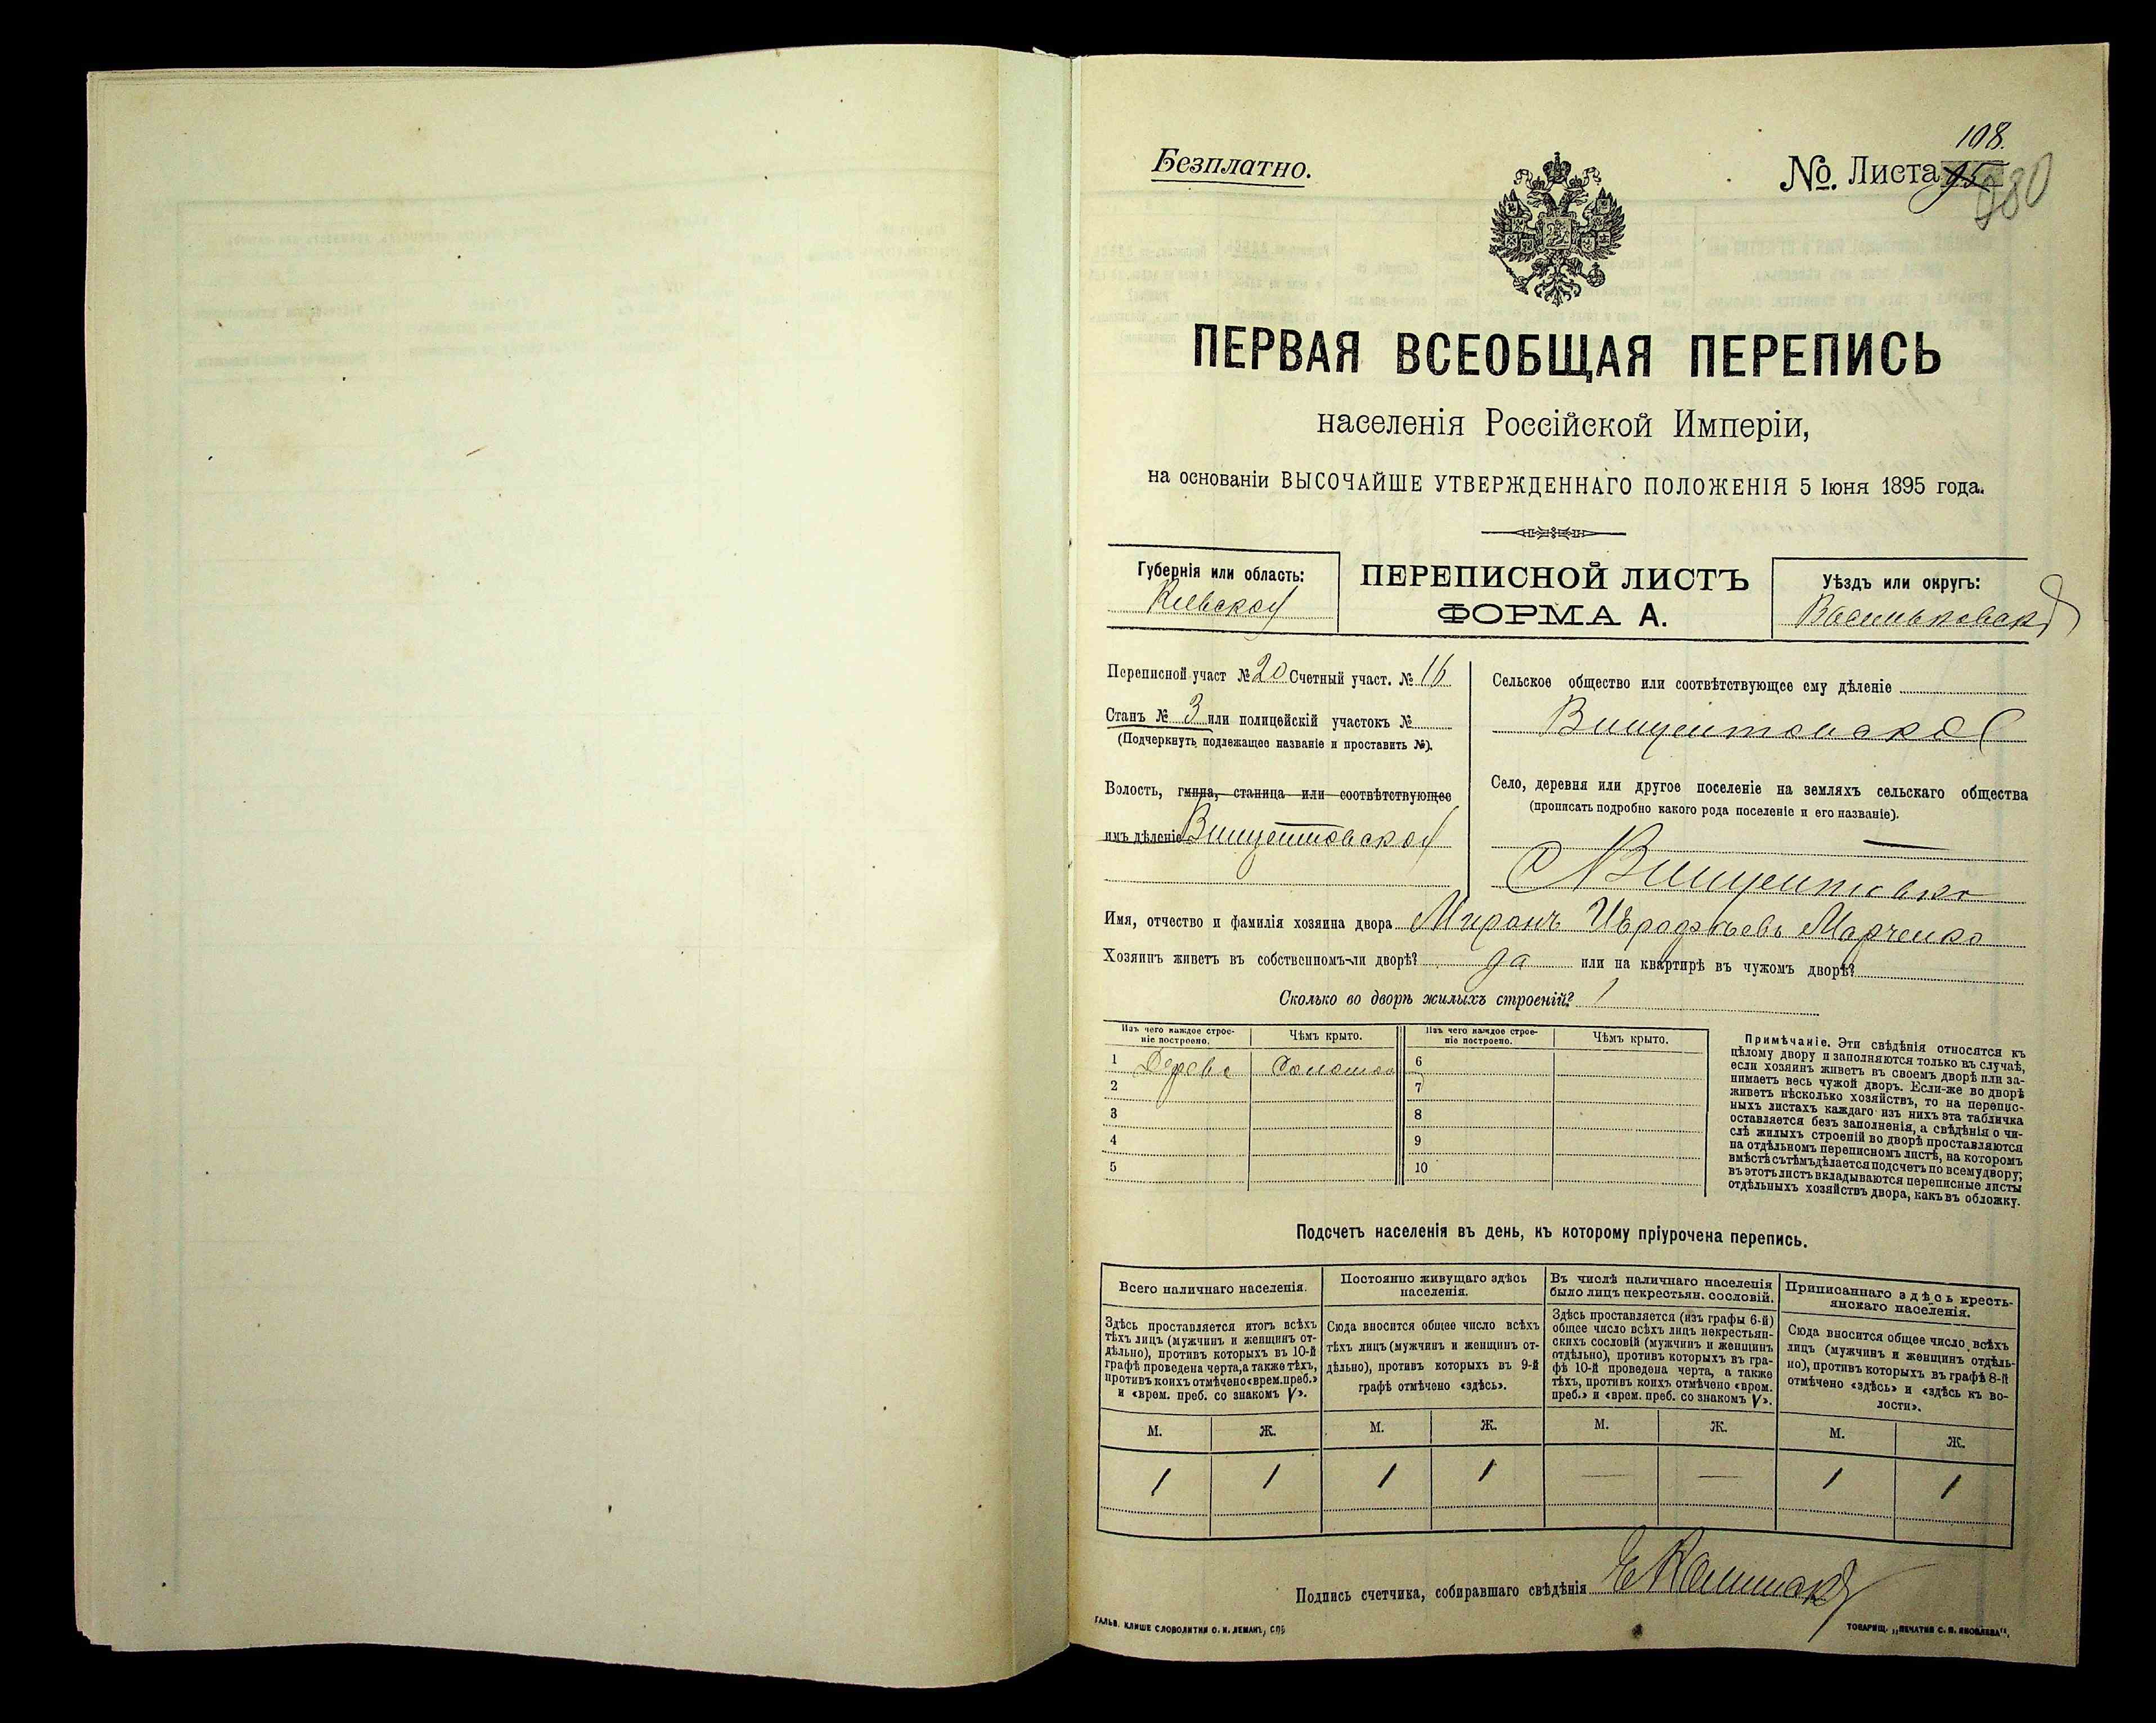 108.
Безплатно.
№. Листа 95
280
ПЕРВАЯ ВСЕОБЩАЯ ПЕРЕПИСЬ
населенія Россійской Имперіи,
на основаніи ВЫСОЧАЙШЕ УТВЕРЖДЕННАГО ПОЛОЖЕНІЯ 5 Іюня 1895 года.
Губернія или область:
Кіевской
ПЕРЕПИСНОЙ ЛИСТЪ
ФОРМА А.
Уѣздъ или округъ:
Васильковскій
Переписной участ № 20 Счетный участ. № 16
Станъ № 3 или полицейскій участокъ №
(Подчеркнуть подлежащее названіе и проставить №).
Волость, гмина, станица или соотвѣтствующее
имъ дѣленіе Винцентовской
Сельское общество или соотвѣтствующее ему дѣленіе
Винцентовское
Село, деревня или другое поселеніе на земляхъ сельскаго общества
(прописать подробно какого рода поселеніе и его названіе).
С Винцентовка
Имя, отчество и фамилія хозяина двора Миронъ Марченко
Хозяинъ живетъ въ собственномъ-ли дворѣ? да или на квартирѣ въ чужомъ дворѣ?
Сколько во дворѣ жилыхъ строеній? 1
Изъ чего каждое строе-
ніе построено.
Чѣмъ крыто.
Изъ чего каждое строе-
ніе построено.
Чѣмъ крыто.
1 Дерева Соломой 6
2 7
3 8
4 9
5 10
Примѣчаніе. Эти свѣдѣнія относятся къ
цѣлому двору и заполняются только въ случаѣ,
если хозяинъ живетъ въ своемъ дворѣ или за-
нимаетъ весь чужой дворъ. Если-же во дворѣ
живетъ нѣсколько хозяйствъ, то на перепис-
ныхъ листахъ каждаго изъ нихъ эта табличка
оставляется безъ заполненія, а свѣдѣнія о чи-
слѣ жилыхъ строеній во дворѣ проставляются
на отдѣльномъ переписномъ листѣ, на которомъ
вмѣстѣ съ тѣмъ дѣлается подсчетъ по всему двору;
въ этотъ листъ вкладываются переписные листы
отдѣльныхъ хозяйствъ двора, какъ въ обложку.
Подсчетъ населенія въ день, къ которому пріурочена перепись.
Всего наличнаго населенія.
Здѣсь проставляется итогъ всѣхъ
тѣхъ лицъ (мужчинъ и женщинъ от-
дѣльно), противъ которыхъ въ 10-й
графѣ проведена черта, а также тѣхъ,
противъ коихъ отмѣчено «врем. преб.»
и «врем. преб. со знакомъ V».
Постоянно живущаго здѣсь
населенія.
Сюда вносится общее число всѣхъ
тѣхъ лицъ (мужчинъ и женщинъ от-
дѣльно), противъ которыхъ въ 9-й
графѣ отмѣчено «здѣсь».
Въ числѣ наличнаго населенія
было лицъ некрестьян. сословій.
Здѣсь проставляется (изъ графы 6-й)
общее число всѣхъ лицъ некрестьян-
скихъ сословій (мужчинъ и женщинъ
отдѣльно), противъ которыхъ въ гра-
фѣ 10-й проведена черта, а также
тѣхъ, противъ коихъ отмѣчено «врем.
преб.» и «врем. преб. со знакомъ V».
Приписаннаго здѣсь кресть-
янскаго населенія.
Сюда вносится общее число всѣхъ
лицъ (мужчинъ и женщинъ отдѣль-
но), противъ которыхъ въ графѣ 8-й
отмѣчено «здѣсь» и «здѣсь къ во-
лости».
М. Ж. М. Ж. М. Ж. М. Ж.
1 1 1 1 — — 1 1
Подпись счетчика, собиравшаго свѣдѣнія
ГАЛЬВ. КЛИШЕ СЛОВОЛИТНИ О. И. ЛЕМАНЪ, СПБ
ТОВАРИЩ. „ПЕЧАТНЯ С. П. ЯКОВЛЕВА“.